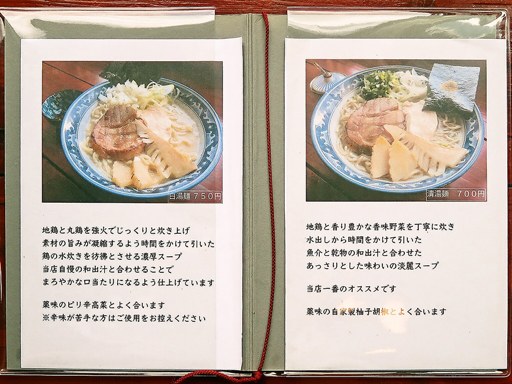 白湯麺 ７５０円
地鶏と丸鶏を強火でじっくりと炊き上げ
素材の旨みが凝縮するよう時間をかけて引いた
鶏の水炊きを彷彿とさせる濃厚スープ
当店自慢の和出汁と合わせることで
まろやかな口当たりになるよう仕上げています
薬味のピリ辛高菜とよく合います
※辛味が苦手な方はご使用をお控えください
清湯麺 ７００円
地鶏と香り豊かな香味野菜を丁寧に炊き
水出しから時間をかけて引いた
魚介と乾物の和出汁と合わせた
あっさりとした味わいの淡麗スープ
当店一番のオススメです
薬味の自家製柚子胡椒とよく合います